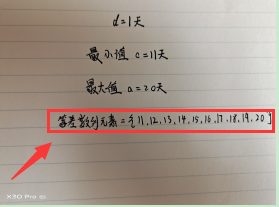 d=1天
最小值 c=11天
最大值 a=20天
等差数列元素={11,12,13,14,15,16,17,18,19,20]
X30 Pro